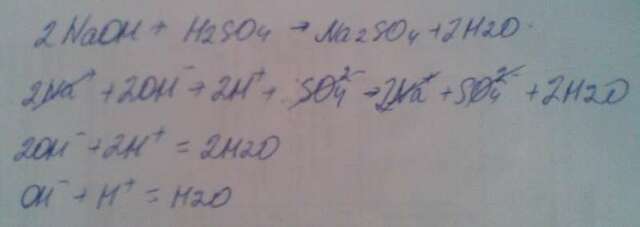 2NaOH + H2SO4 → Na2SO4 + 2H2O.
2Na⁺ + 2OH⁻ + 2H⁺ + SO4²⁻ → 2Na⁺ + SO4²⁻ + 2H2O
2OH⁻ + 2H⁺ = 2H2O
OH⁻ + H⁺ = H2O